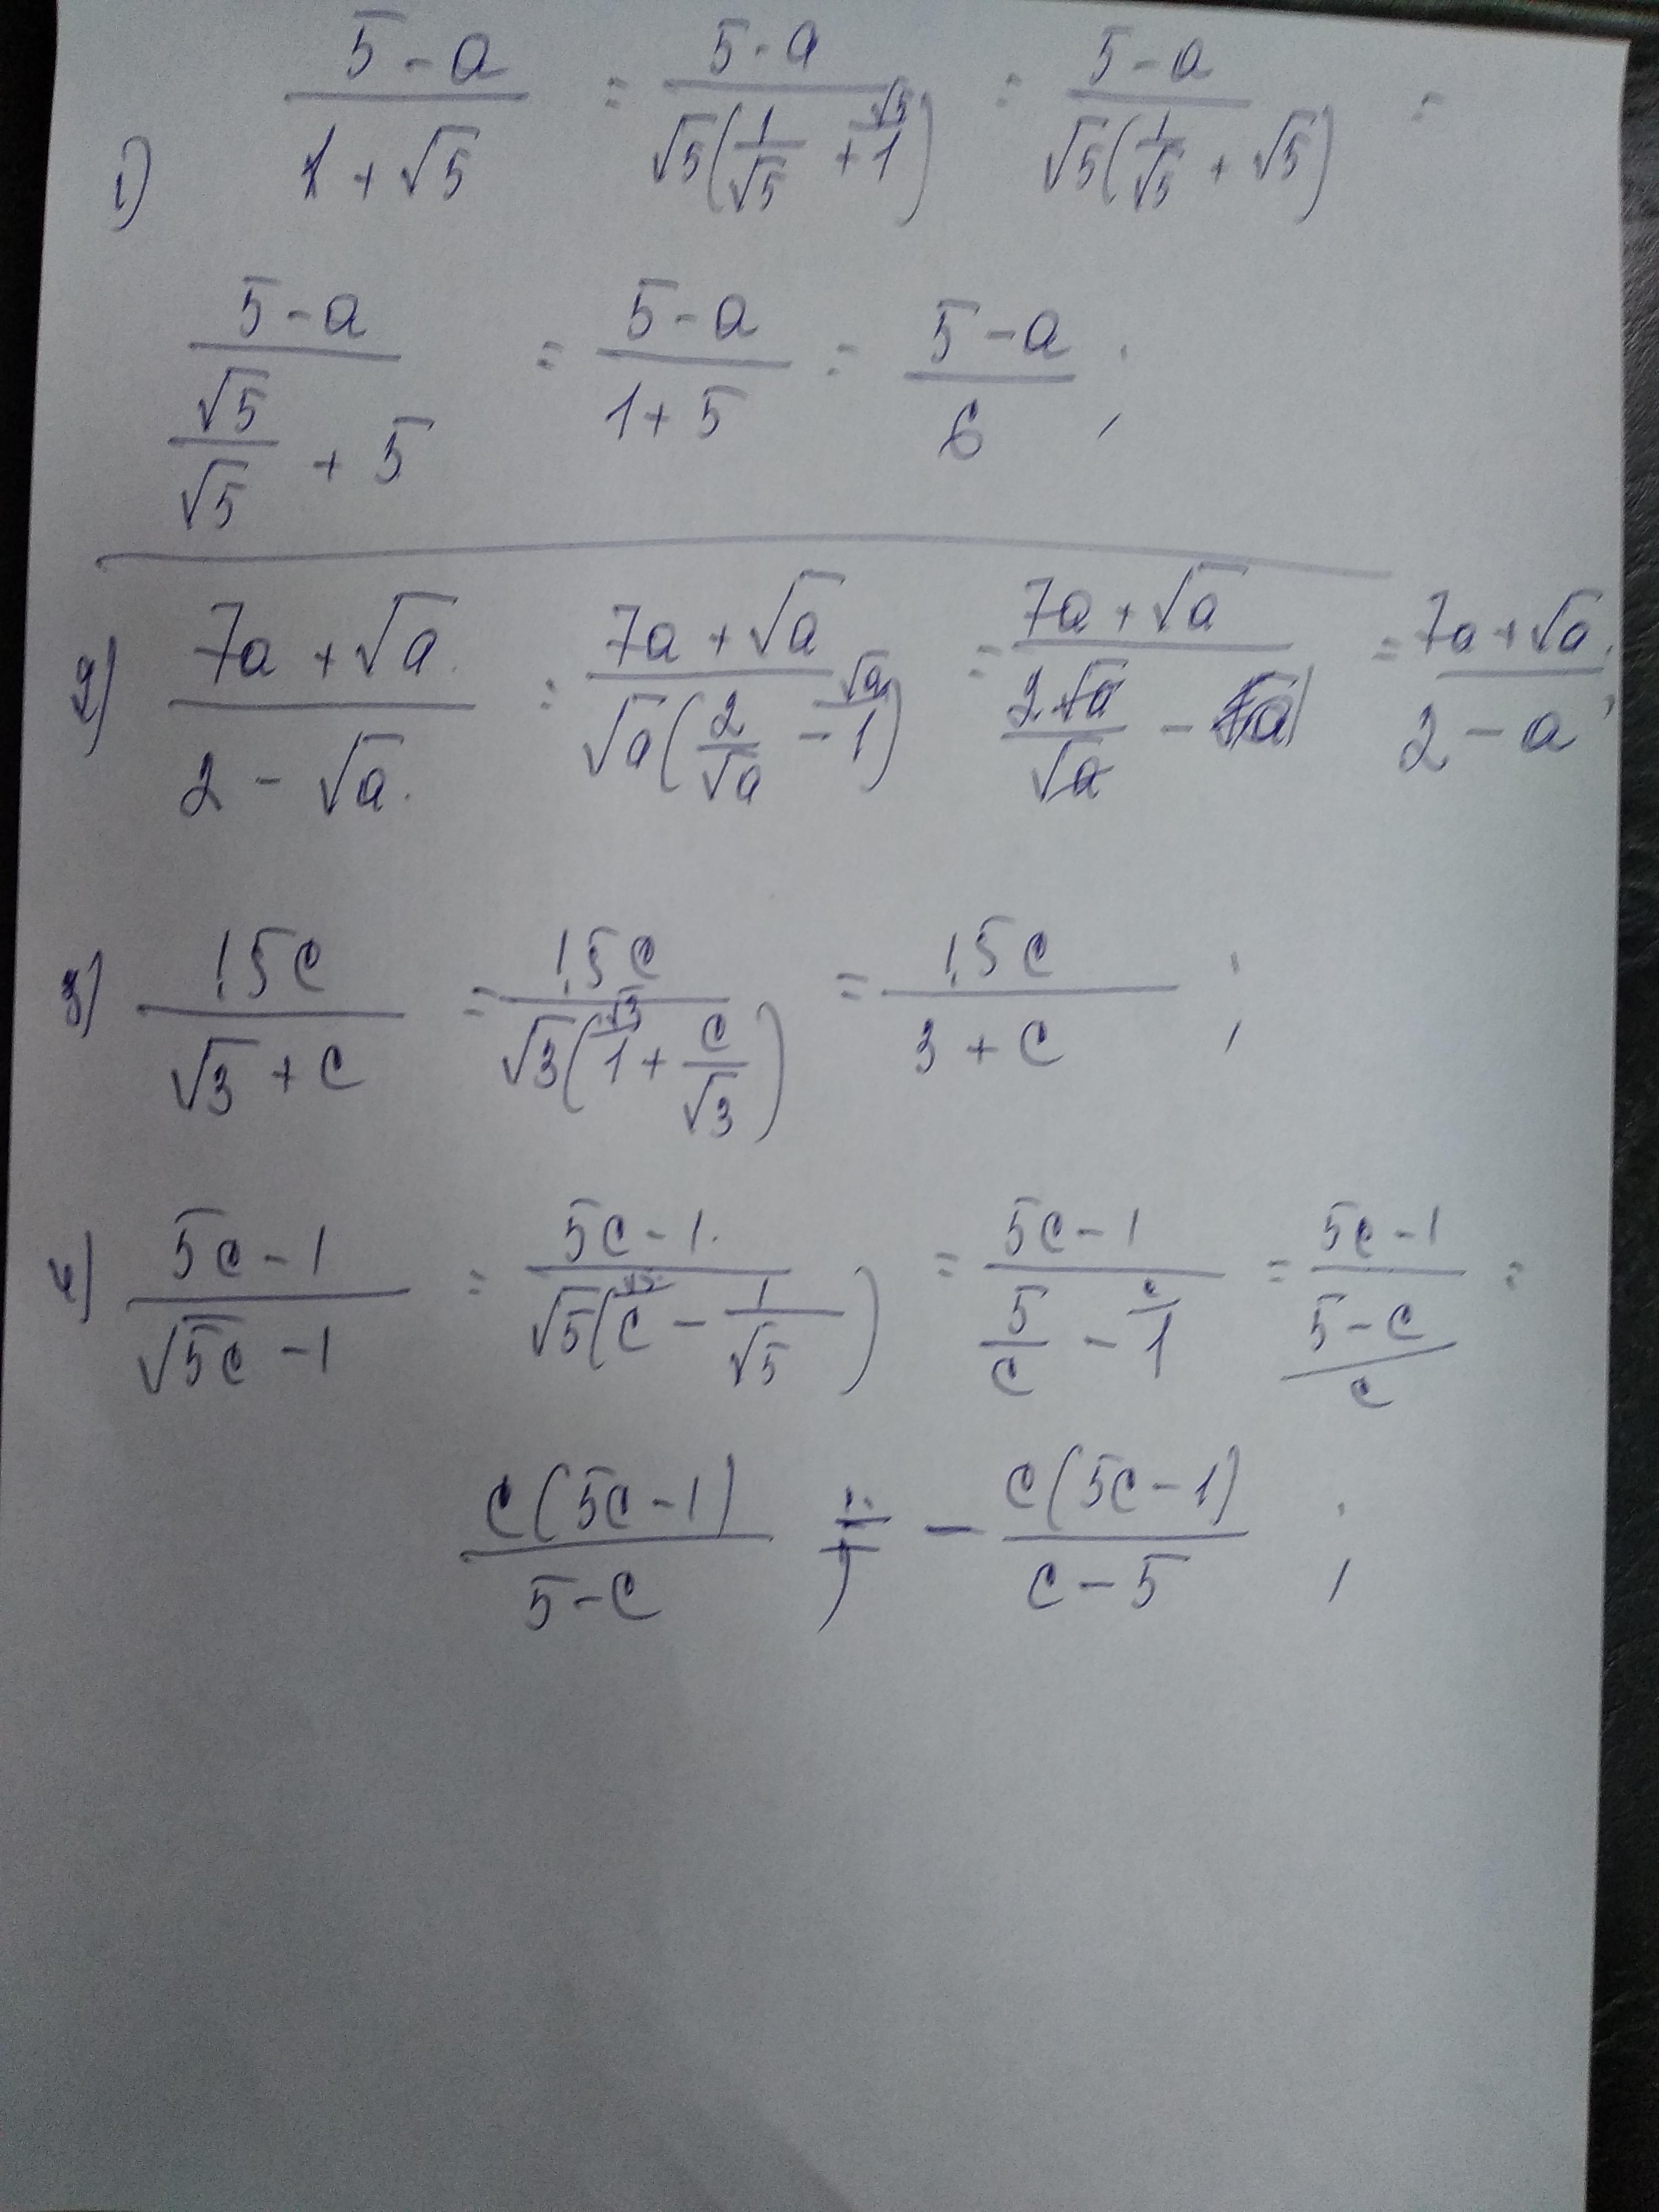 1) (5-a)/(1+√5) = (5-a)/(√5(1/√5 + √5/1)) = (5-a)/(√5(1/√5 + √5)) =
(5-a)/(√5/√5 + 5) = (5-a)/(1+5) = (5-a)/6 ;
2) (7a+√a)/(2-√a) = (7a+√a)/(√a(2/√a - √a/1)) = (7a+√a)/(2√a/√a - a) = (7a+√a)/(2-a) ;
3) 15c/(√3+c) = 15c/(√3(√3/1 + c/√3)) = 15c/(3+c) ;
4) (5c-1)/(√5c-1) = (5c-1)/(√5(√5/c - 1/√5)) = (5c-1)/(5/c - c/1) = (5c-1)/((5-c)/c) =
c(5c-1)/(5-c) = - c(5c-1)/(c-5) ;